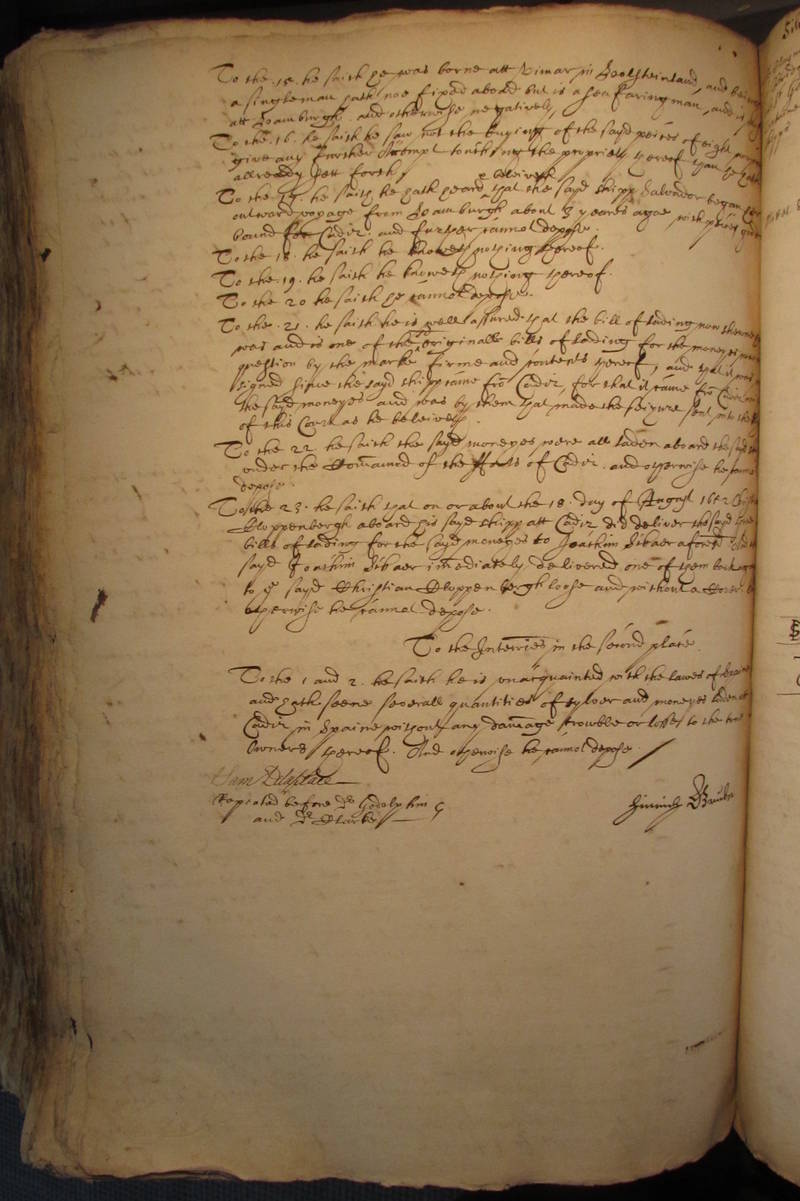 To the .15. he saith he was borne att Vimar in Hoolsteinland, and being
a single man hath noe fixed aboad but is a sea faring man, and is
att Hamburgh. and otherwise negatively
To the 16. he saith he saw not the buying of the sayd peices of eight
give any further Accompt touching the propriety thereof than he hath
allready sett forth
To the 17. he saith he hath heard & beleiveth that the sayd shipp Salvador began her
outward voyage from Hamburgh about 3 yeares agoe with
bound for Cadiz. and further cannot depose.
To the 18. he saith he knoweth nothing thereof.
To the .19. he saith he knoweth nothing thereof.
To the 20 he saith he cannot depose.
To the .21. he saith he is well assured that the bill of lading now shewed
was and is one of the originall bills of lading for the moneyes in
question by the marke firme and contents thereof, and that it was
signed since the sayd shipp came fro Cadiz, for that it came fro Cadiz
the sayd moneyes and was by them that made the seizure sent into the
of this Court as he beleiveth.
To the 22. he saith the sayd moneyes were all laden aboard the sayd
under the Command of the of Cadiz. and otherwise he cannot
depose.
To the 23. he saith that on or about the 18. day of August 1652
Kloppenbergh aboard his sayd shipp att Cadiz did deliver the sayd
bills of lading for the sayd moneyes to Joachim Sikaer aforesd
sayd Joachim Sikaer imediately delivered one of them back
to ye sayd Christian Kloppenbergh loose and without a Cover.
otherwise he cannot depose.
To the Interries in the second place.
To the 1 and 2. he saith he is unacquainted with the lawes of
and hath seene severall quantities of sylver and moneyes laden att
Cadiz in Spaine without any damage trouble or losse to the
Owners thereof. And otherwise he cannot depose.
Repeated before Dr Godolphin
and Dr Clarke